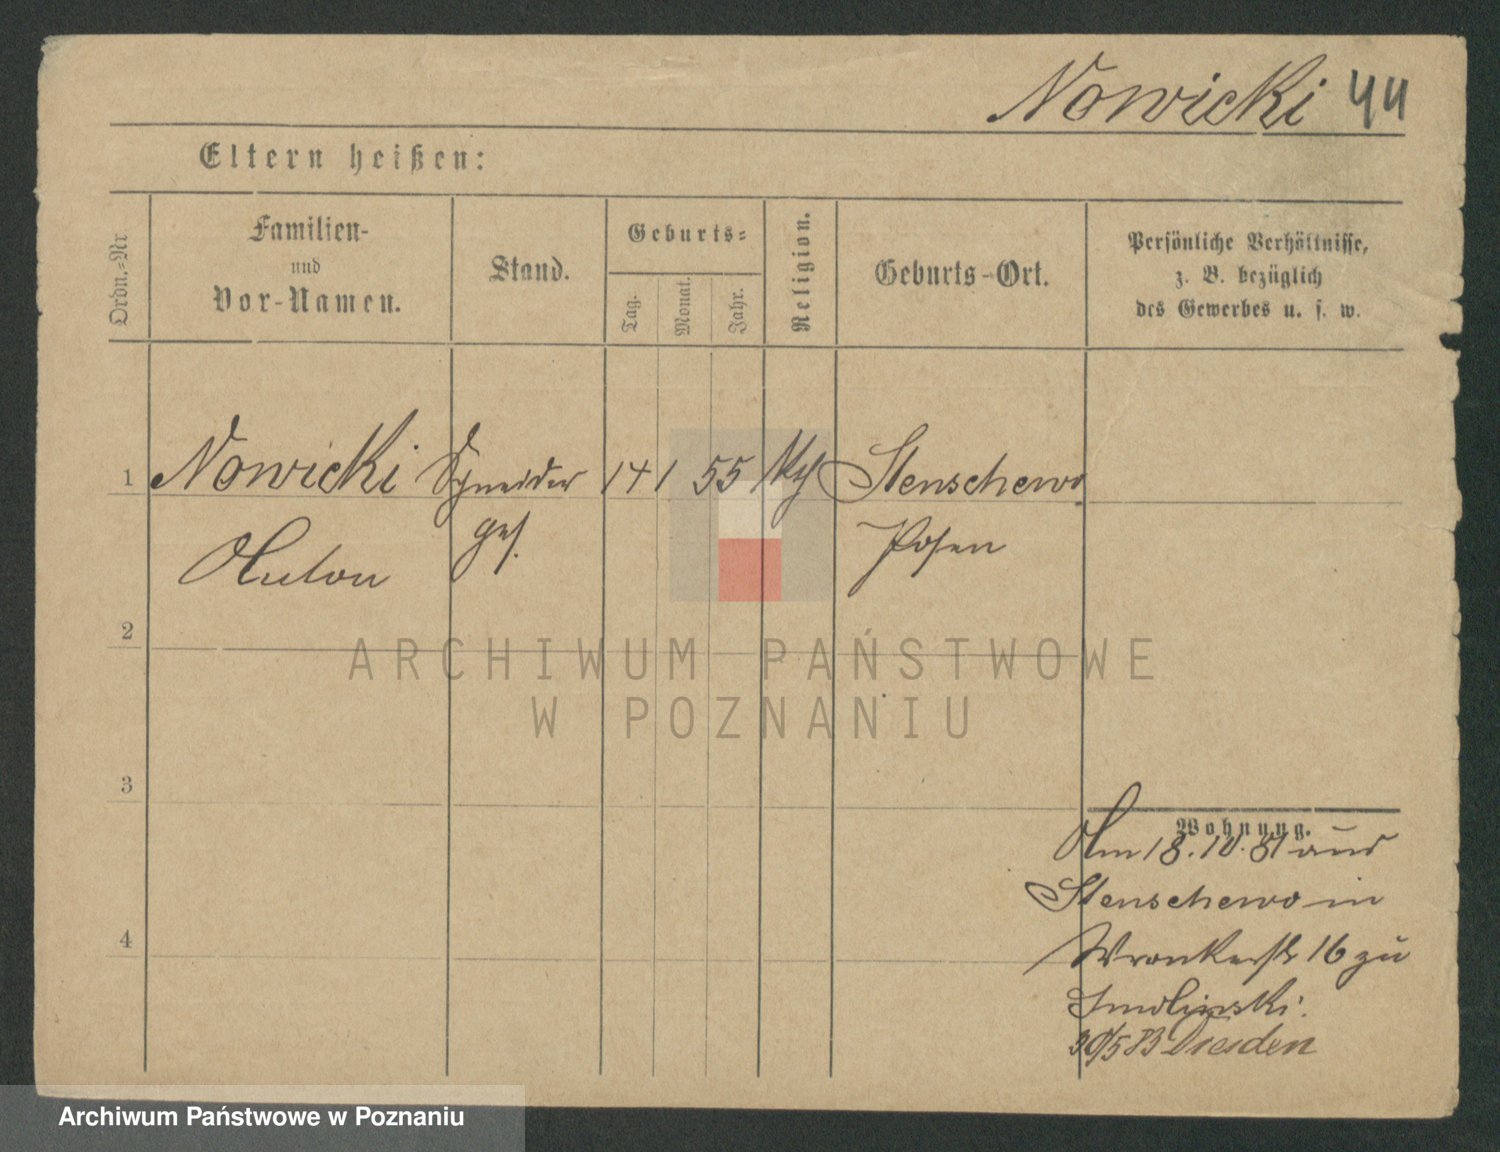 Nowicki 44
Eltern heißen:
Ordn.=Nr
Familien-
und
Vor-Namen.
Stand.
Geburts=
Tag.
Monat.
Jahr.
Religion.
Geburts-Ort.
Persönliche Verhältnisse,
z. B. bezüglich
des Gewerbes u. s. w.
1 Nowicki Schneider 14 1 55 Stenschewo
Anton ges. Posen
2
ARCHIWUM PAŃSTWOWE
W POZNANIU
3
Wohnung.
Am 18. 10. 81 aus
Stenschewo in
4
Wronkerstr 16 zu
Smolinski.
30/5 83 Dresden
Archiwum Państwowe w Poznaniu